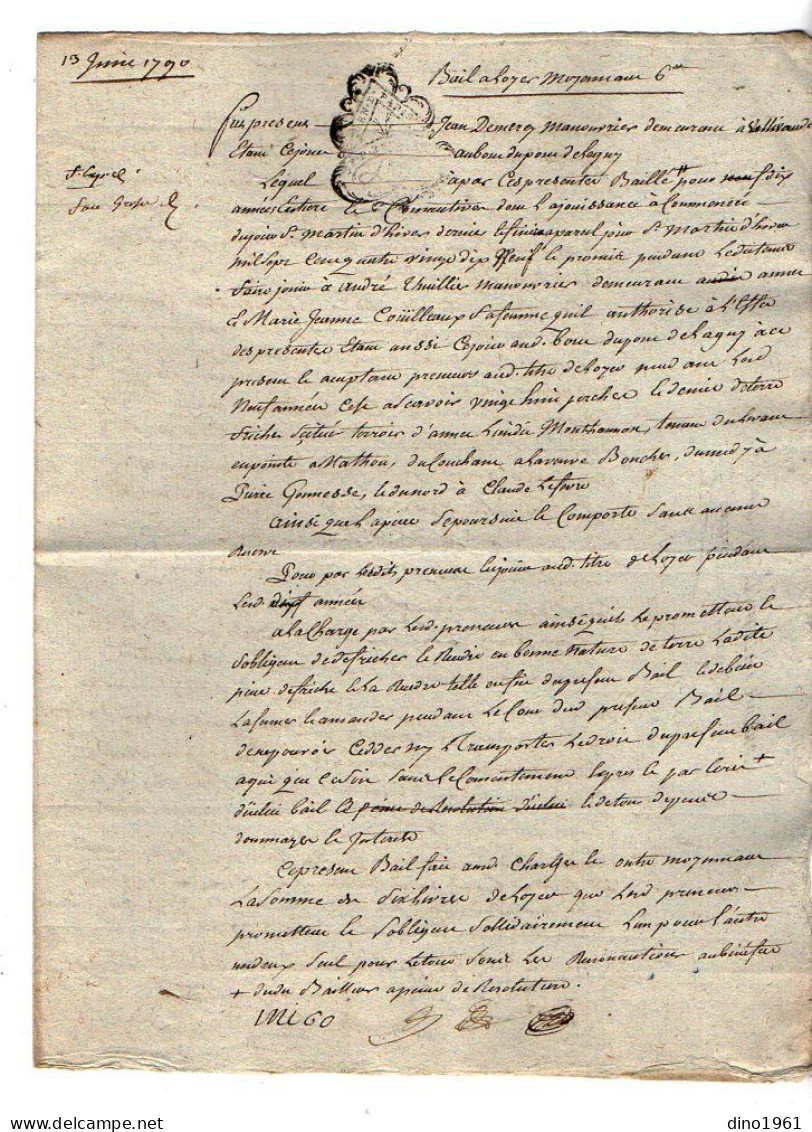 13 Juin 1790
Bail a Loyer moyennant 6##
Fut present Jean Demercy manouvrier demeurant à
Etant Cejour au bout du pont de Lagny
Lequel a par Ces presentes Baillé pour dix
années Entiere & Consecutives dont la jouissance à Commencée
du jour St. Martin d'hiver dernier & finira pareil jour St. Martin d'hiver
mil sept Cent quatre vingt dix Neuf & promit pendant ledit tems
faire jouir à andré Thuillier manouvrier demeurant annet
& Marie Jeanne Coüilleaux Sa femme qu'il authorise à L'Effet
des presentes Etant aussi Cejour aud. bout du pont de Lagny à ce
present & acceptant preneurs aud. titre de Loyer pendant Lesd.
Neuf années C'est a scavoir vingt huit perches & demie de terre
friche Scituée terroir d'annet Lieudit Monthaumon, tenant du Levant
en pointe a Mathou, du Couchant a la veuve Boucher, du midy à
Pierre Gonnesse, & du nord à Claude Lefevre
ainsi que la piece Se poursuit & Comporte Sans aucune
Reserve
Pour par Lesdits preneurs En jouir aud. titre de Loyer pendant
Lesd. années
a la Charge par Lesd. preneurs ainsi qu'ils Le promettent &
S'obligent de defricher & Rendre en bonne Nature de terre Ladite
piece de friche & La Rendre telle en fin du present Bail & de bien
La fumer & amander pendant Le Cours dud. present Bail
de ne pouvoir Cedder ny Transporter Le droit du present bail
a qui que ce soit Sans Le Consentement Expres & par Ecrit +
d'icelui bail & de tous depens
dommages & Interets
Ce present Bail fait aud. Charges & outre moyennant
La Somme de Six livres de Loyer que Lesd. preneurs
promettent & S'obligent Solidairement L'un pour L'autre
un deux Seul pour Le tout Sous Les Renonciations au benefice
+ dudit Bailleur a peine de Resolution.
dino1961